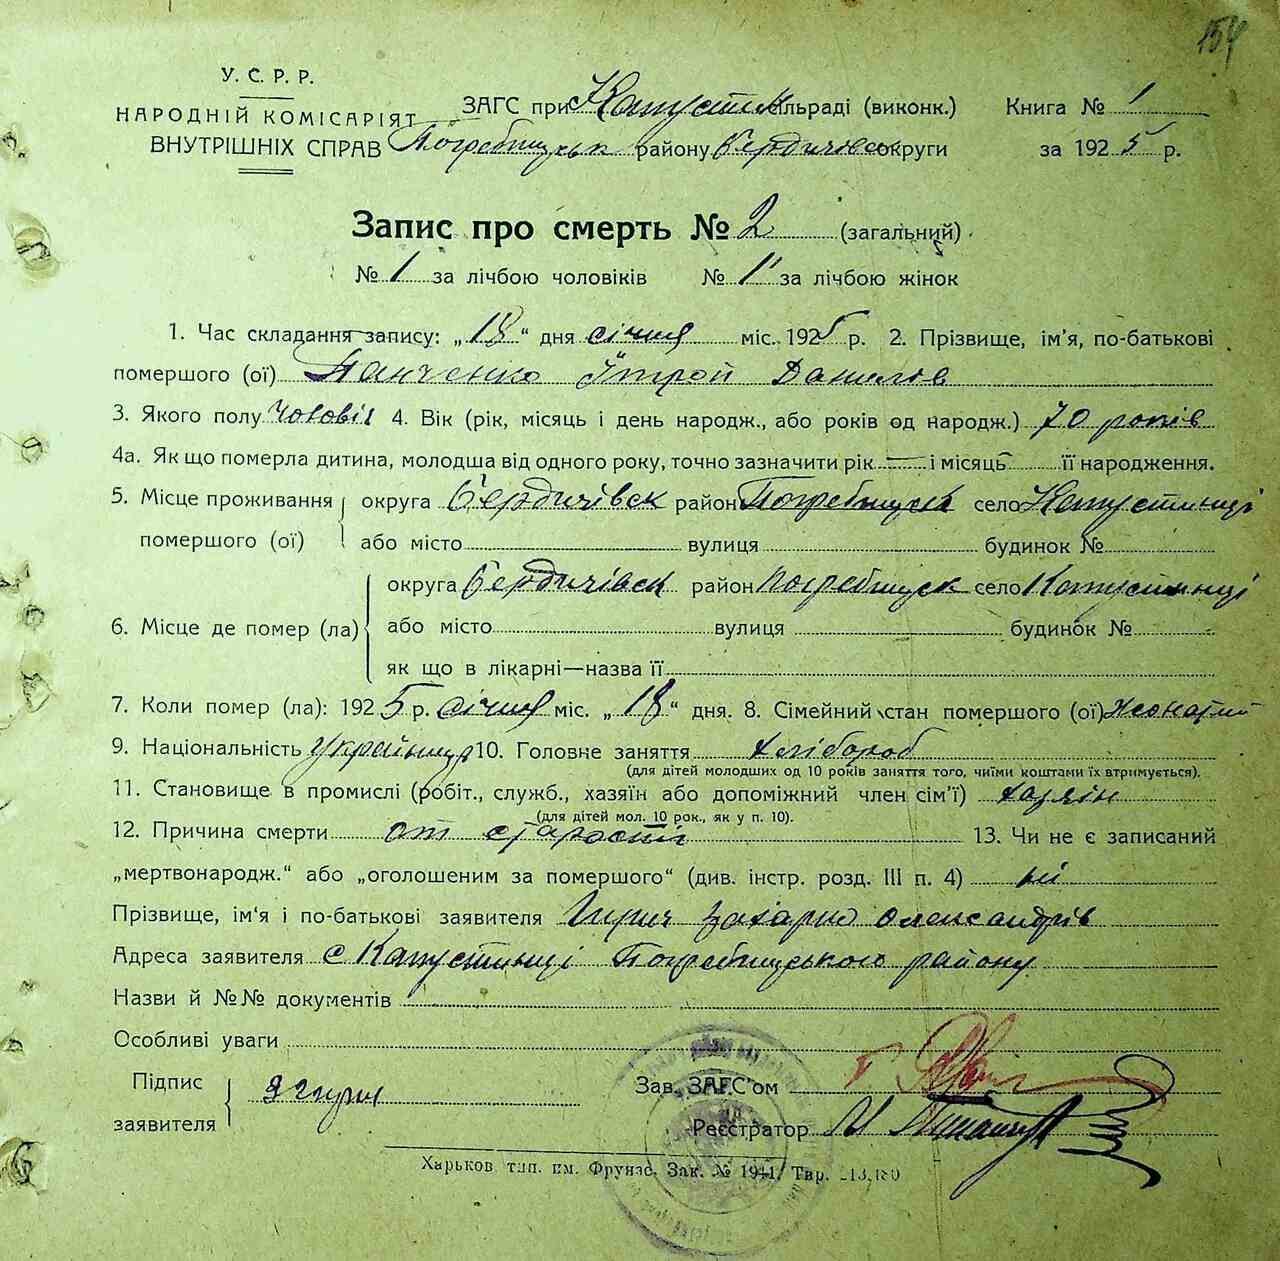 154
У. С. Р. Р.
НАРОДНІЙ КОМІСАРІЯТ
ВНУТРІШНІХ СПРАВ
ЗАГС при Капустин сільраді (виконк.) Книга № 1
Погребищськ району Бердичівськ округи за 1925 р.
Запис про смерть № 2 (загальний)
№ 1 за лічбою чоловіків № 1 за лічбою жінок
1. Час складання запису: „18“ дня січня міс. 1925 р. 2. Прізвище, ім'я, по-батькові
помершого (ої) Панченко Данилов
3. Якого полу Чоловік 4. Вік (рік, місяць і день народж., або років од народж.) 70 років
4а. Як що померла дитина, молодша від одного року, точно зазначити рік — і місяць — її народження.
5. Місце проживання помершого (ої) округа Бердичівск район Погребищск село Капустинці
або місто вулиця будинок №
6. Місце де помер (ла) округа Бердичівск район Погребищск село Капустинці
або місто вулиця будинок №
як що в лікарні—назва її
7. Коли помер (ла): 1925 р. січня міс. „18“ дня. 8. Сімейний стан помершого (ої) Жонатий
9. Національність Українец 10. Головне заняття хлібороб
(для дітей молодших од 10 років заняття того, чиїми коштами їх втримується).
11. Становище в промислі (робіт., служб., хазяїн або допоміжний член сім'ї) хазяїн
(для дітей мол. 10 рок., як у п. 10).
12. Причина смерти от старости 13. Чи не є записаний
„мертвонародж.“ або „оголошеним за помершого“ (див. інстр. розд. III п. 4) ні
Прізвище, ім'я і по-батькові заявителя Захарко Олександрів
Адреса заявителя с Капустинці Погребищського району
Назви й №№ документів
Особливі уваги
Підпис заявителя
Зав. ЗАГС'ом
Реєстратор
Харьков тип. им. Фрунзе. Зак. № 1941. Тир.